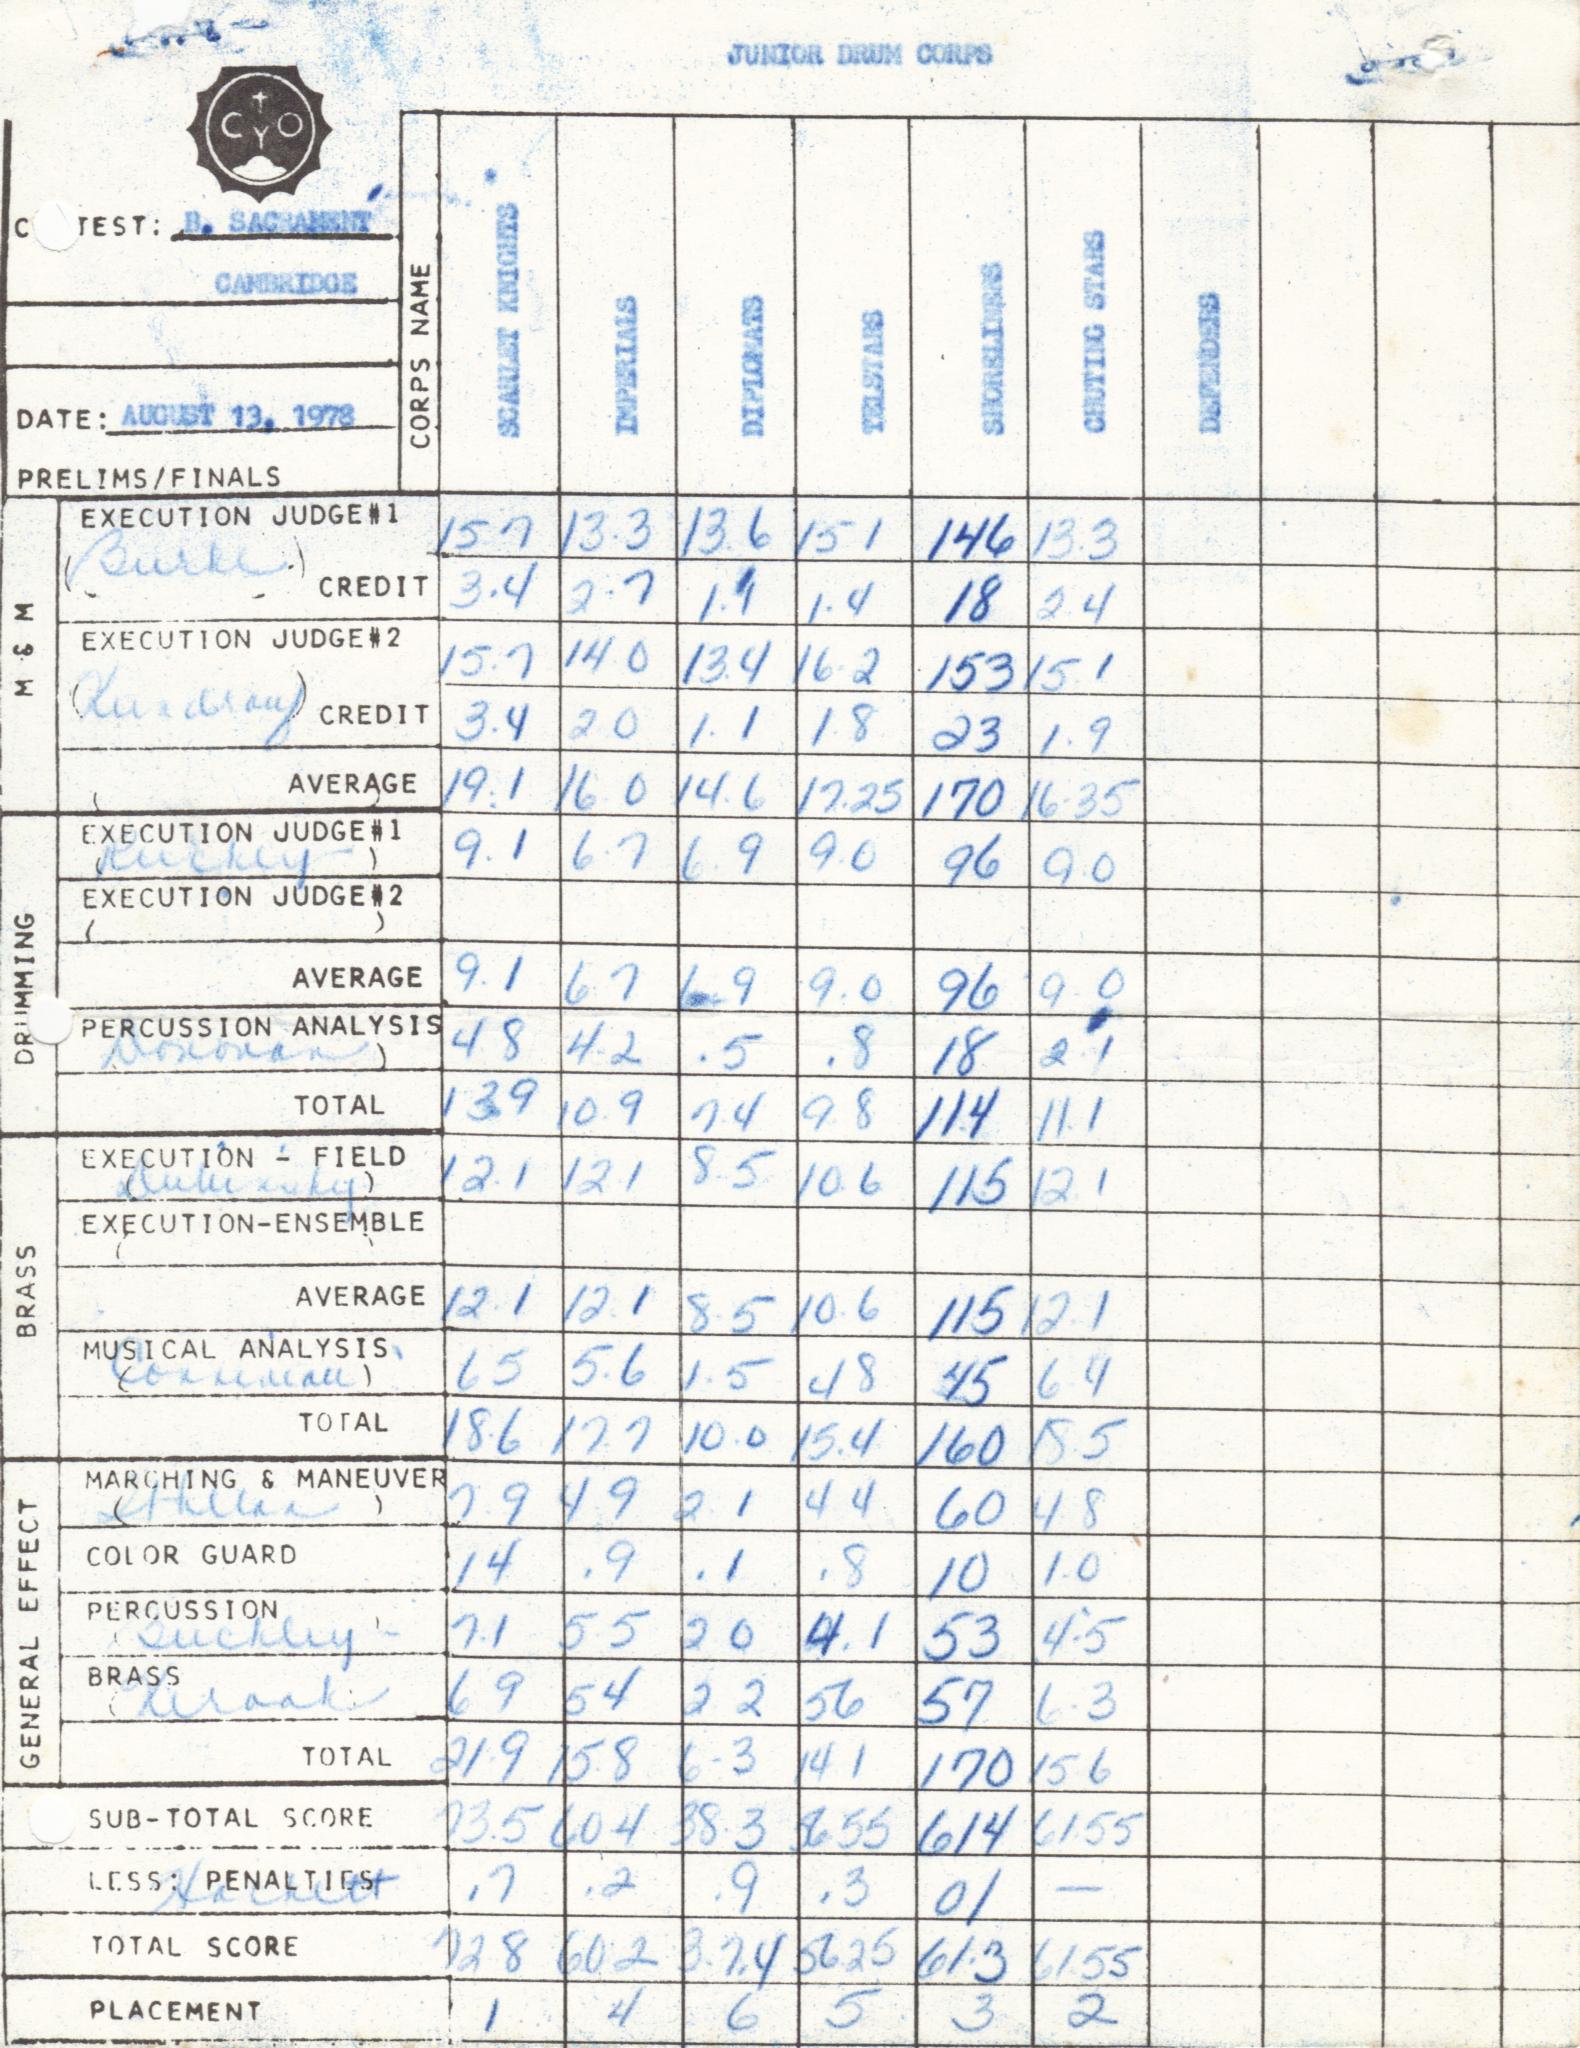 JUNIOR DRUM CORPS
CYO
C TEST: B. SACRAMENT
CAMBRIDGE
DATE: AUGUST 13, 1978
PRELIMS/FINALS
CORPS NAME SCARLET KNIGHTS IMPERIALS DIPLOMATS TELSTARS SHORELINERS CHUTING STARS DEFENDERS
M & M
EXECUTION JUDGE#1 15.7 13.3 13.6 15 1 146 13.3
(Burke)
CREDIT 3.4 2.7 1.9 1.4 18 2 4
EXECUTION JUDGE#2 15.7 14.0 13.4 16.2 153 15.1
CREDIT 3.4 20 1.1 1.8 23 1.9
AVERAGE 19.1 16 0 14.6 17.25 170 16.35
DRUMMING
EXECUTION JUDGE#1 9.1 6.7 6.9 9.0 96 9.0
(Buckley)
EXECUTION JUDGE#2
( )
AVERAGE 9.1 67 6.9 9.0 96 9.0
PERCUSSION ANALYSIS 48 4.2 .5 .8 18 2.1
(Donovan)
TOTAL 139 10.9 7.4 9.8 114 11.1
BRASS
EXECUTION - FIELD 12.1 121 8.5 10.6 115 12.1
EXECUTION-ENSEMBLE
AVERAGE 12.1 12.1 8.5 10.6 115 12.1
MUSICAL ANALYSIS 65 5.6 1.5 48 45 6.4
TOTAL 18.6 17.7 10.0 15.4 160 18.5
GENERAL EFFECT
MARCHING & MANEUVER 7.9 49 2.1 44 60 48
COLOR GUARD 14 .9 .1 .8 10 1.0
PERCUSSION 7.1 55 20 4.1 53 4.5
(Buckley)
BRASS 69 54 22 56 57 6.3
TOTAL 21.9 15.8 6.3 141 170 156
SUB-TOTAL SCORE 73.5 604 38.3 5655 614 61.55
LESS: PENALTIES .7 .2 .9 .3 01 —
Hackett
TOTAL SCORE 728 60.2 3.7.4 56.25 61.3 61.55
PLACEMENT 1 4 6 5 3 2